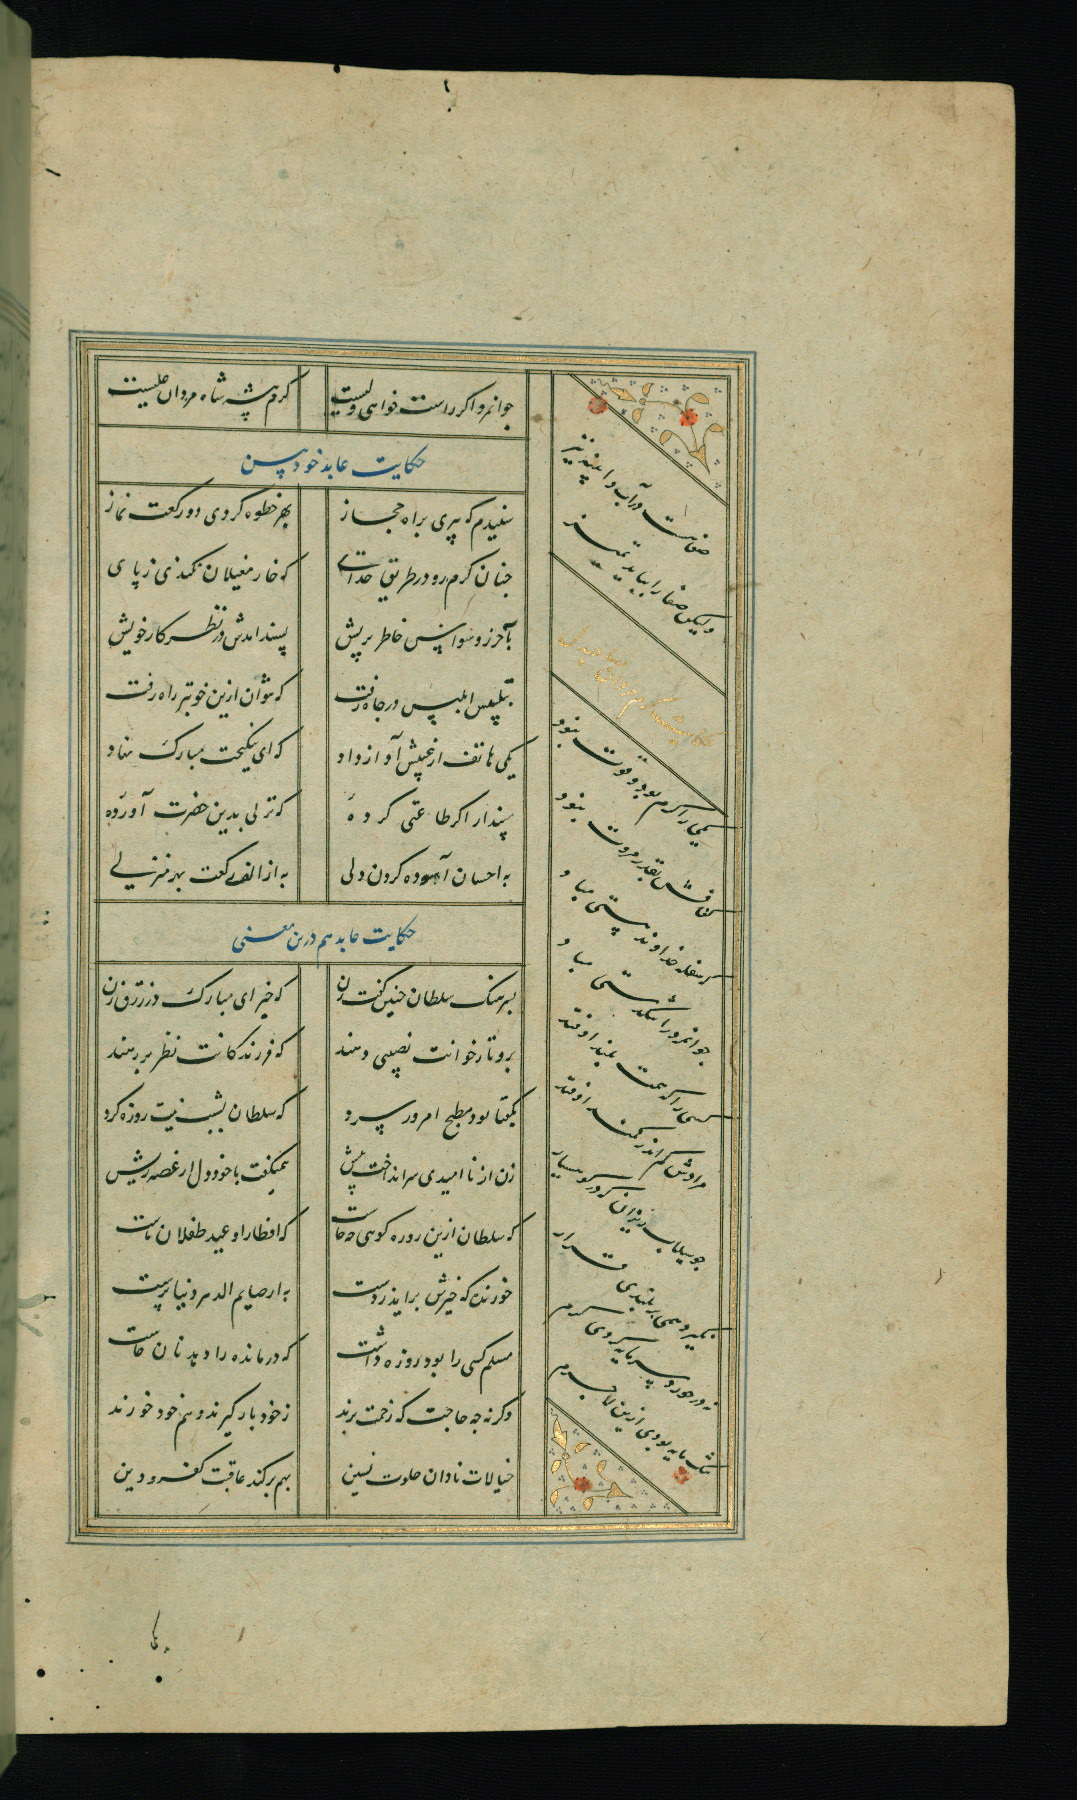 جوانمرد اگر راست خواهی ولیست
کرم پیشه شاه مردان علیست
حکایت عابد خودبین
شنیدم که پیری براه حجاز
بهر خطوه کردی دو رکعت نماز
چنان گرم رو در طریق خدای
که خار مغیلان نکندی ز پای
بآخر ز وسواس خاطر پریش
پسند آمدش در نظر کار خویش
بتلبیس ابلیس در چاه رفت
که نتوان ازین خوبتر راه رفت
یکی هاتف از غیبش آواز داد
که ای نیکبخت مبارک نهاد
مپندار اگر طاعتی کرده
که نزلی بدین حضرت آورده
به احسان آسوده کردن دلی
به از الف رکعت بهر منزلی
حکایت عابد هم درین معنی
بسرهنگ سلطان چنین گفت زن
که خیز ای مبارک در رزق زن
برو تا ز خوانت نصیبی دهند
که فرزندکانت نظر بر رهند
بگفتا بود مطبخ امروز سرد
که سلطان بشب نیت روزه کرد
زن از ناامیدی سر انداخت پیش
همیگفت با خود دل از غصه ریش
که سلطان ازین روزه گوئی چه خاست
که افطار او عید طفلان ماست
خورنده که خیرش برآید ز دست
به از صایم الدهر دنیا پرست
مسلم کسی را بود روزه داشت
که درمانده را دهد نان چاشت
وگرنه چه حاجت که زحمت برند
ز خود بازگیرند و هم خود خورند
خیالات نادان خلوت نشین
بهم برکند عاقبت کفر و دین
صفائیست در آب و آیینه نیز
ولیکن صفا را بباید تمیز
یکی را کرم بود و قوت نبود
کفافش بقدر مروت نبود
که سفله خداوند هستی مباد
جوانمرد را تنگدستی مباد
کسی را که همت بلند اوفتد
مرادش کم اندر کمند اوفتد
چو سیلاب ریزان که در کوهسار
نگیرد همی بر بلندی قرار
نه درخورد سرمایه کردی کرم
تنک مایه بودی ازین لاجرم